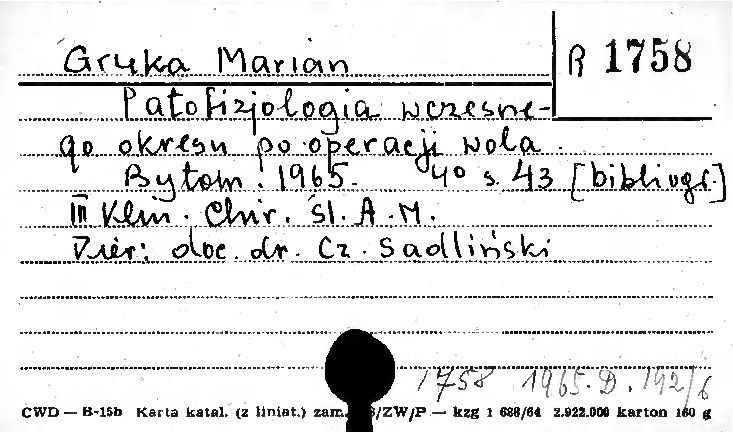 Gryka Marian
R 1758
Patofizjologia wczesne-
go okresu po operacji wola.
Bytom. 1965. 4° s. 43 [bibliogr.]
III Klin. Chir. Śl. A.M.
Kier: doc. dr. Cz. Sadliński
1758 1965.D.192/6
CWD — B-15b Karta katal. (z liniat.) zam. /ZW/P — kzg 1 688/64 2.922.000 karton 160 g